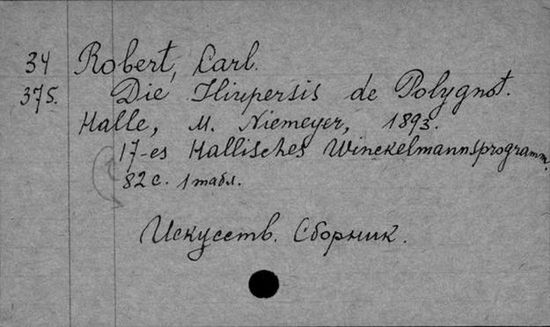 34 Robert, Carl.
375. Die Iliupersis de Polygnot.
Halle, M. Niemeyer, 1893.
17-es Hallisches Winckelmannsprogramm.
82 с. 1 табл.
Искусств. Сборник.